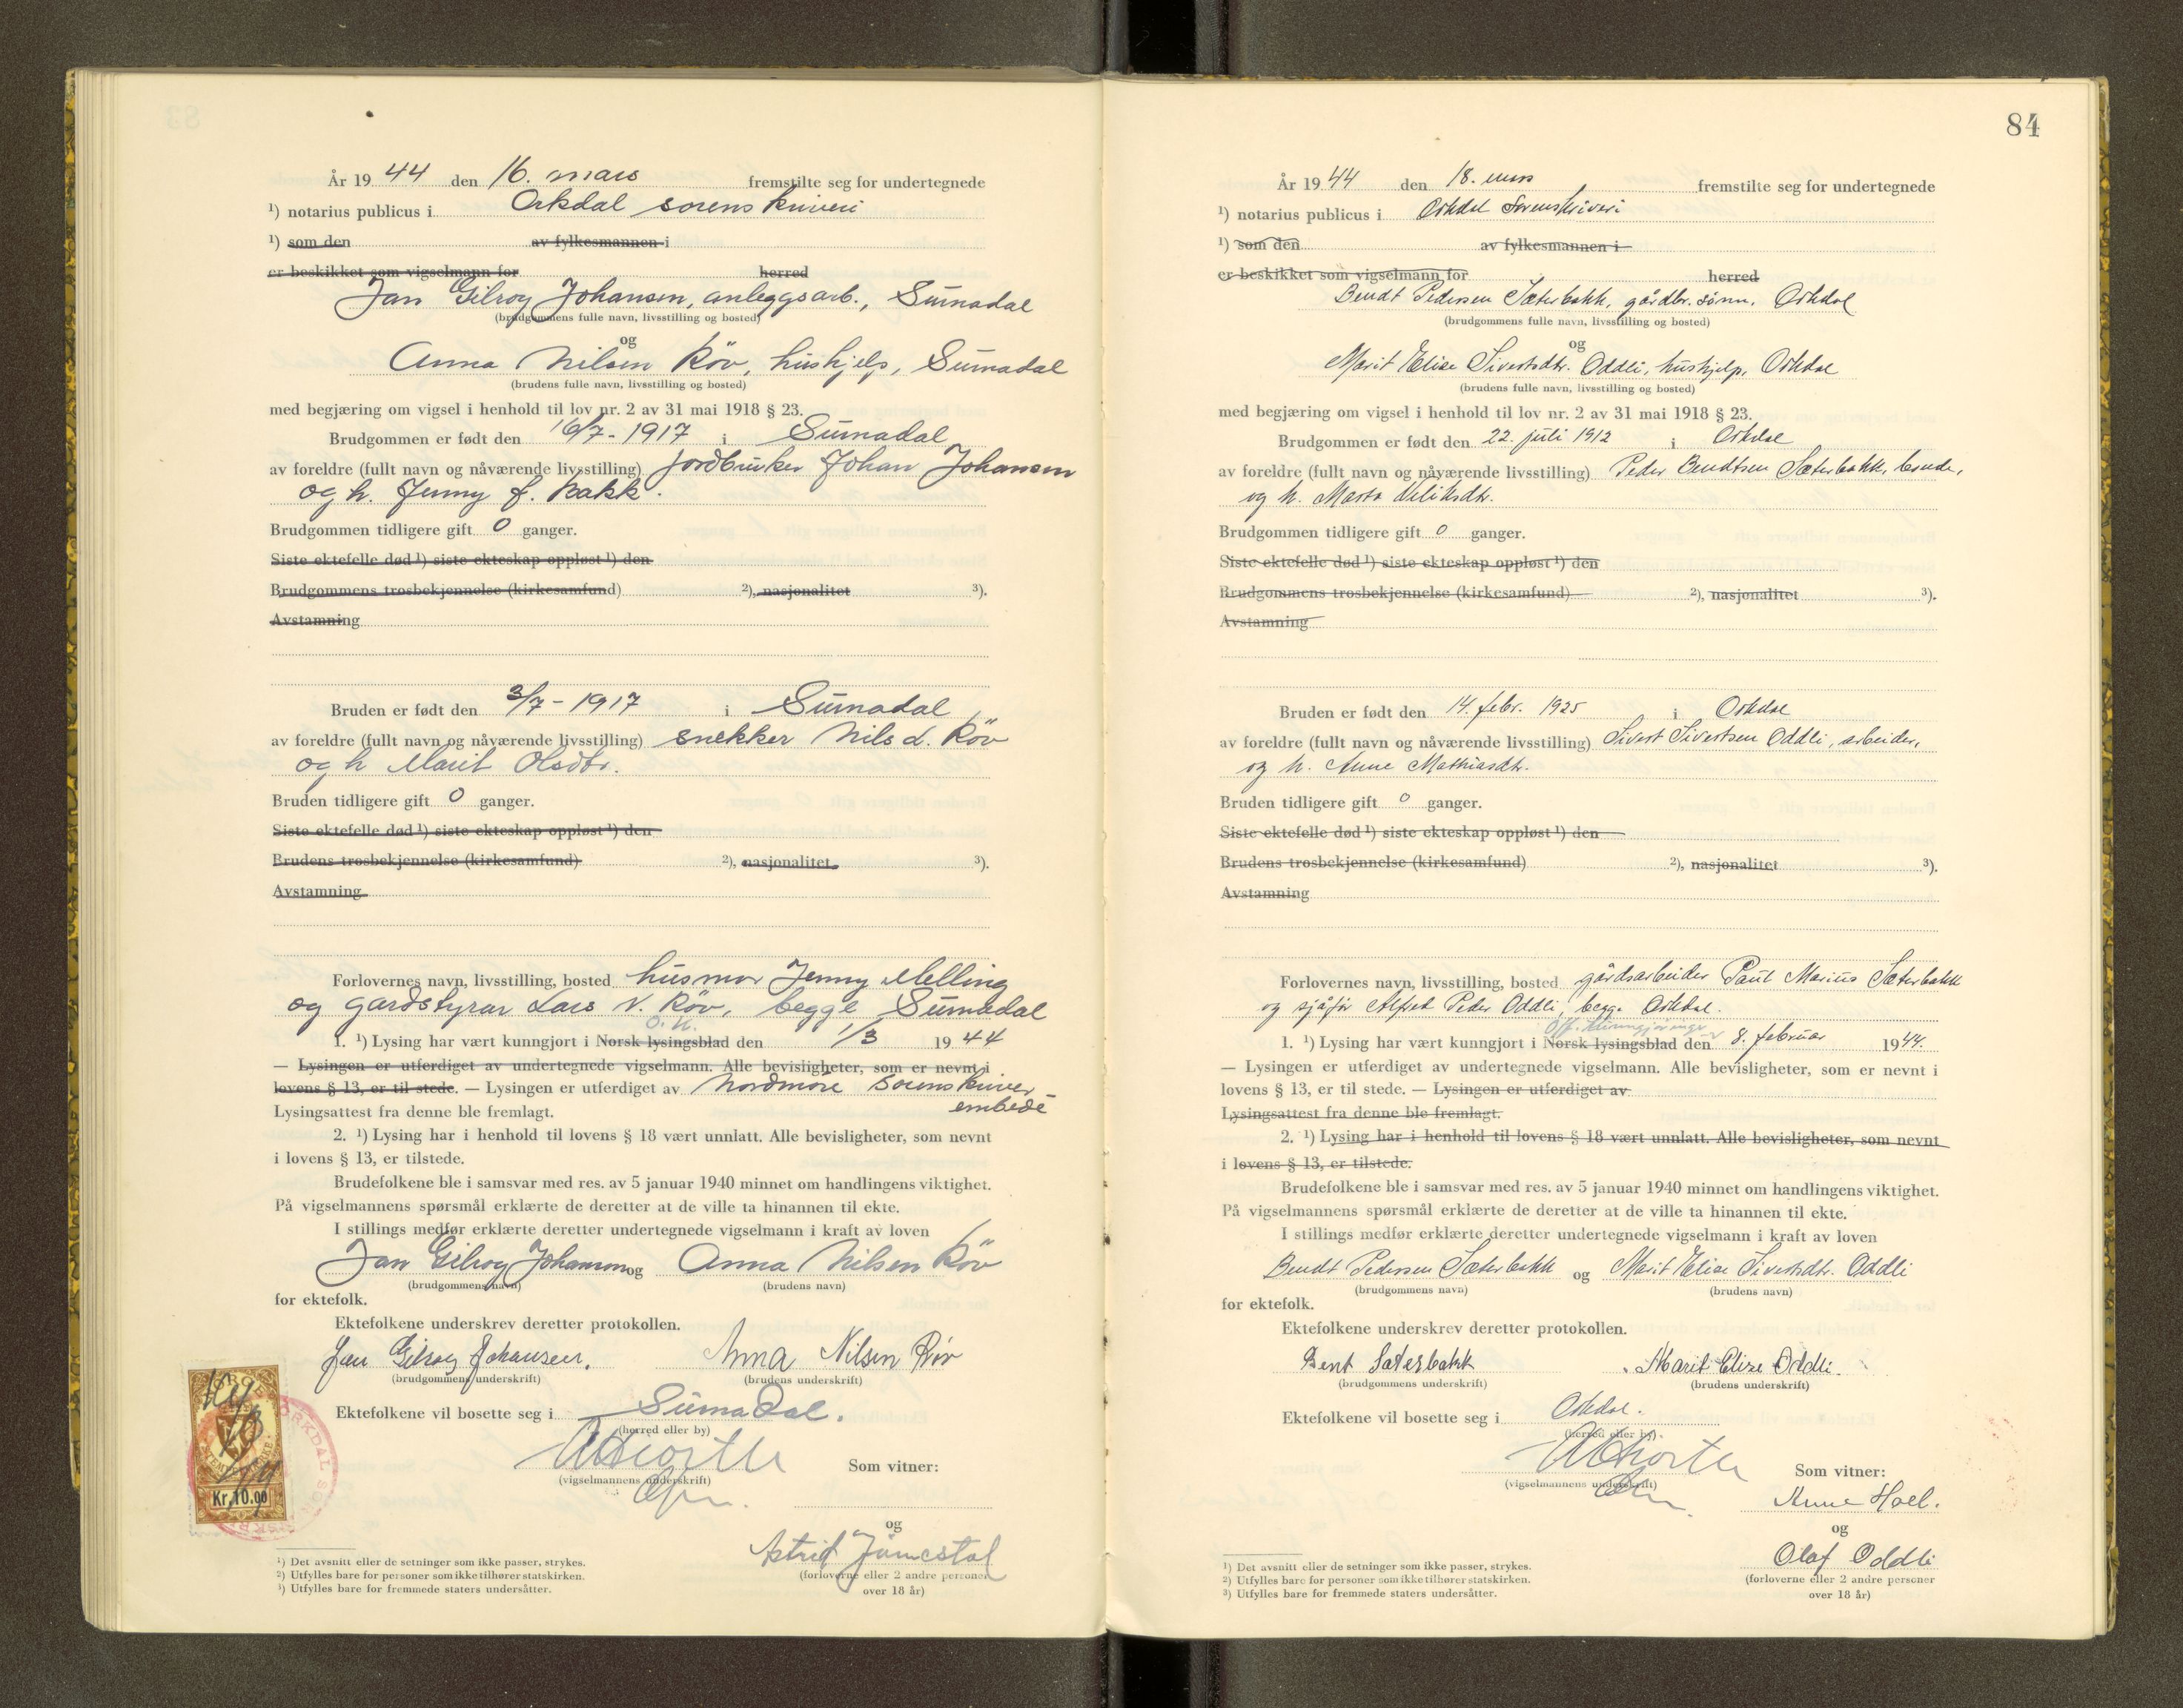 År 19 44 den 16. mars fremstilte seg for undertegnede
¹) notarius publicus i Orkdal sorenskriveri
¹) som den av fylkesmannen i
er beskikket som vigselmann for herred
Jan Gilroy Johansen, anleggsarb., Surnadal
(brudgommens fulle navn, livsstilling og bosted)
og
Anna Nilsen Röv, hushjelp, Surnadal
(brudens fulle navn, livsstilling og bosted)
med begjæring om vigsel i henhold til lov nr. 2 av 31 mai 1918 § 23.
Brudgommen er født den 16/7-1917 i Surnadal
av foreldre (fullt navn og nåværende livsstilling) jordbruker Johan Johansen
og h. Jenny f. Bakk.
Brudgommen tidligere gift 0 ganger.
Siste ektefelle død ¹) siste ekteskap oppløst ¹) den
Brudgommens trosbekjennelse (kirkesamfund) ²), nasjonalitet ³).
Avstamning
Bruden er født den 3/7-1917 i Surnadal
av foreldre (fullt navn og nåværende livsstilling) snekker Nils L. Röv
og h Marit Olsdtr.
Bruden tidligere gift 0 ganger.
Siste ektefelle død ¹) siste ekteskap oppløst ¹) den
Brudens trosbekjennelse (kirkesamfund) ²), nasjonalitet ³).
Avstamning
Forlovernes navn, livsstilling, bosted husmor Jenny Melling
og gardstyrar Lars N. Röv, begge Surnadal
O. K.
1. ¹) Lysing har vært kunngjort i Norsk lysingsblad den 1/3 19 44
— Lysingen er utferdiget av undertegnede vigselmann. Alle bevisligheter, som er nevnt i
lovens § 13, er til stede. — Lysingen er utferdiget av Nordmöre sorenskriver
embede
Lysingsattest fra denne ble fremlagt.
2. ¹) Lysing har i henhold til lovens § 18 vært unnlatt. Alle bevisligheter, som nevnt
i lovens § 13, er tilstede.
Brudefolkene ble i samsvar med res. av 5 januar 1940 minnet om handlingens viktighet.
På vigselmannens spørsmål erklærte de deretter at de ville ta hinannen til ekte.
I stillings medfør erklærte deretter undertegnede vigselmann i kraft av loven
Jan Gilroy Johansen og Anna Nilsen Röv
(brudgommens navn) (brudens navn)
for ektefolk.
Ektefolkene underskrev deretter protokollen.
Jan Gilroy Johansen. Anna Nilsen Röv
(brudgommens underskrift) (brudens underskrift)
Ektefolkene vil bosette seg i Surnadal.
(herred eller by)
(vigselmannens underskrift)
Som vitner:
og
Astrid
(forloverne eller 2 andre personer
over 18 år)
NORGE
Kr. 10.00
ORKDAL
¹) Det avsnitt eller de setninger som ikke passer, strykes.
²) Utfylles bare for personer som ikke tilhører statskirken.
³) Utfylles bare for fremmede staters undersåtter.
84
År 19 44 den 18. mars fremstilte seg for undertegnede
¹) notarius publicus i Orkdal Sorenskriveri
¹) som den av fylkesmannen i
er beskikket som vigselmann for herred
Bendt Pedersen Sæterbakk, gårdbr. sönn, Orkdal
(brudgommens fulle navn, livsstilling og bosted)
og
Marit Elise Sivertsdtr. Oddli, hushjelp, Orkdal
(brudens fulle navn, livsstilling og bosted)
med begjæring om vigsel i henhold til lov nr. 2 av 31 mai 1918 § 23.
Brudgommen er født den 22. juli 1912 i Orkdal
av foreldre (fullt navn og nåværende livsstilling) Peder Bendtsen Sæterbakk, bonde,
og h. Marta
Brudgommen tidligere gift 0 ganger.
Siste ektefelle død ¹) siste ekteskap oppløst ¹) den
Brudgommens trosbekjennelse (kirkesamfund) ²), nasjonalitet ³).
Avstamning
Bruden er født den 14. febr. 1925 i Orkdal
av foreldre (fullt navn og nåværende livsstilling) Sivert Sivertsen Oddli, arbeider,
og h. Anne Mathiasdtr.
Bruden tidligere gift 0 ganger.
Siste ektefelle død ¹) siste ekteskap oppløst ¹) den
Brudens trosbekjennelse (kirkesamfund) ²), nasjonalitet ³).
Avstamning
Forlovernes navn, livsstilling, bosted gårdsarbeider Paul Marius Sæterbakk
og sjåfør Alfred Peder Oddli, begge Orkdal.
Off. kunngjøringer
1. ¹) Lysing har vært kunngjort i Norsk lysingsblad den 8. februar 19 44.
— Lysingen er utferdiget av undertegnede vigselmann. Alle bevisligheter, som er nevnt i
lovens § 13, er til stede. — Lysingen er utferdiget av
Lysingsattest fra denne ble fremlagt.
2. ¹) Lysing har i henhold til lovens § 18 vært unnlatt. Alle bevisligheter, som nevnt
i lovens § 13, er tilstede.
Brudefolkene ble i samsvar med res. av 5 januar 1940 minnet om handlingens viktighet.
På vigselmannens spørsmål erklærte de deretter at de ville ta hinannen til ekte.
I stillings medfør erklærte deretter undertegnede vigselmann i kraft av loven
Bendt Pedersen Sæterbakk og Marit Elise Sivertsdtr. Oddli
(brudgommens navn) (brudens navn)
for ektefolk.
Ektefolkene underskrev deretter protokollen.
Bent Sæterbakk Marit Elise Oddli.
(brudgommens underskrift) (brudens underskrift)
Ektefolkene vil bosette seg i Orkdal.
(herred eller by)
(vigselmannens underskrift)
Som vitner:
Anne Hoel.
og
Olaf Oddli
(forloverne eller 2 andre personer
over 18 år)
¹) Det avsnitt eller de setninger som ikke passer, strykes.
²) Utfylles bare for personer som ikke tilhører statskirken.
³) Utfylles bare for fremmede staters undersåtter.